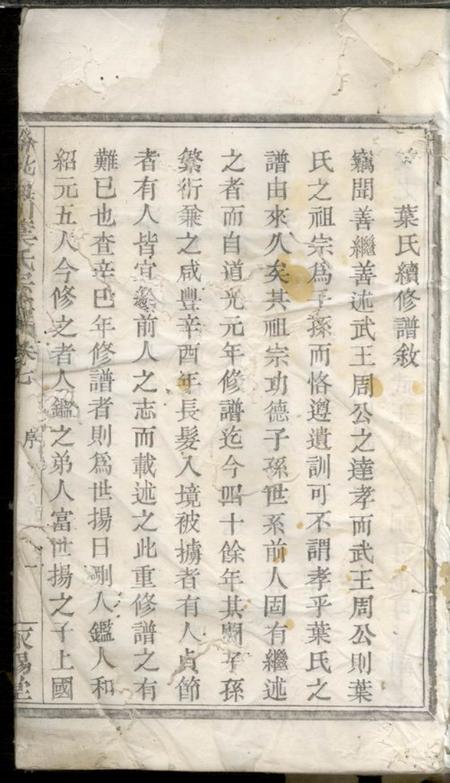 葉氏續修譜敘
竊聞善繼善述武王周公之達孝而武王周公則葉
氏之祖宗為子孫而恪遵遺訓可不謂孝乎葉氏之
譜由來久矣其祖宗功德子孫世系前人固有繼述
之者而自道光元年修譜迄今四十餘年其間子孫
繁衍兼之咸豐辛酉年長髮入境被擄者有人貞節
者有人皆宜繼前人之志而載述之此重修譜之有
難已也查辛巳年修譜者則爲世揚日剛人鑑人和
紹元五人今修之者人鑑之弟人富世揚之子上國
氏宗譜 卷七 序 一